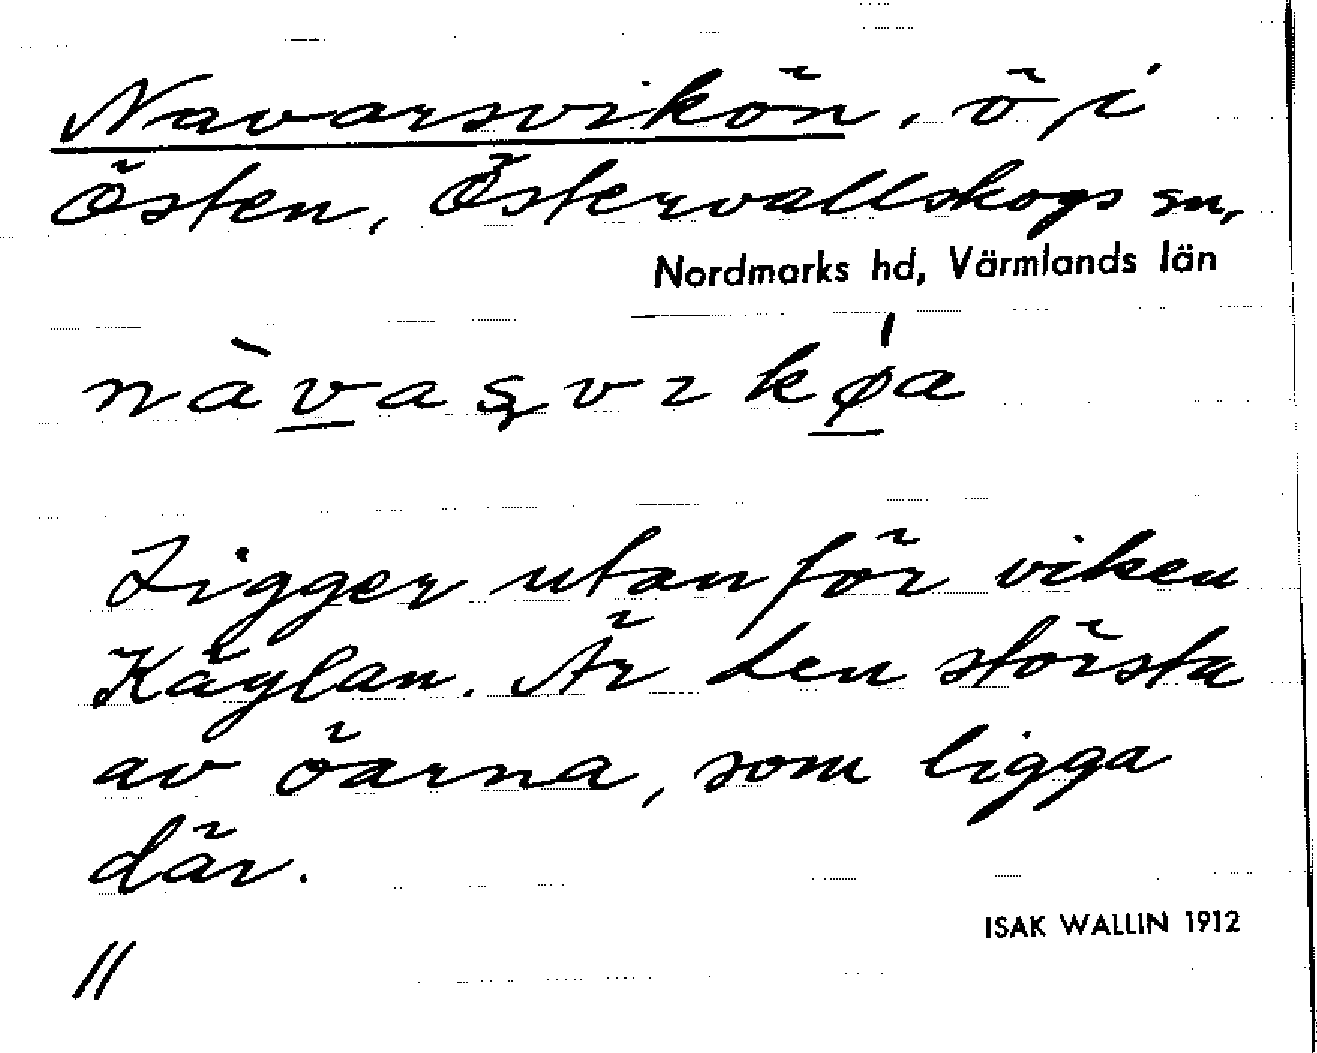 Navarsvikön, ö i
Östen, Östervallskogs sn,
Nordmarks hd, Värmlands län
nàvaʂvɩkǿa
Ligger utanför viken
Käylan. Är den största
av öarna, som ligga
där.
ISAK WALLIN 1912
//